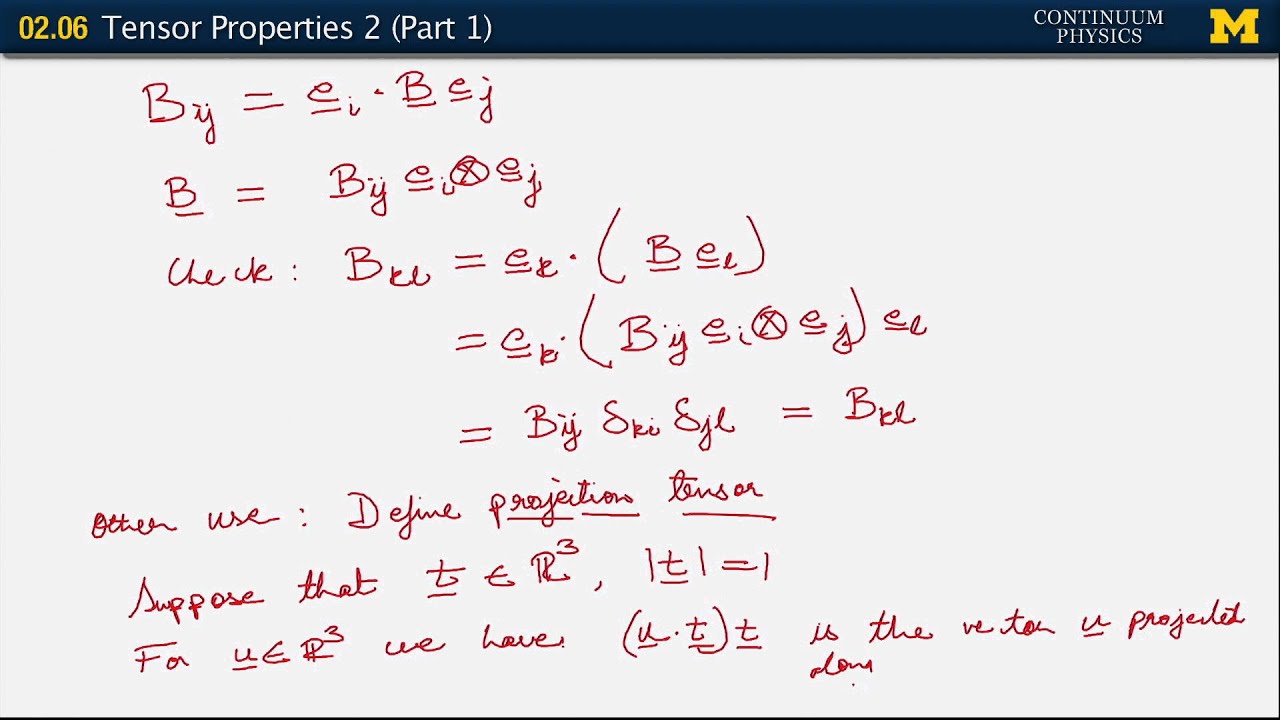 02.06 Tensor Properties 2 (Part 1)
CONTINUUM
PHYSICS
M
B_ij = e_i · B e_j
B = B_ij e_i ⊗ e_j
Check : B_kl = e_k · ( B e_l )
= e_k · ( B_ij e_i ⊗ e_j ) e_l
= B_ij δ_ki δ_jl = B_kl
Other use : Define projection tensor
Suppose that t ∈ ℝ³ , |t| = 1
For u ∈ ℝ³ we have (u · t) t is the vector u projected
along